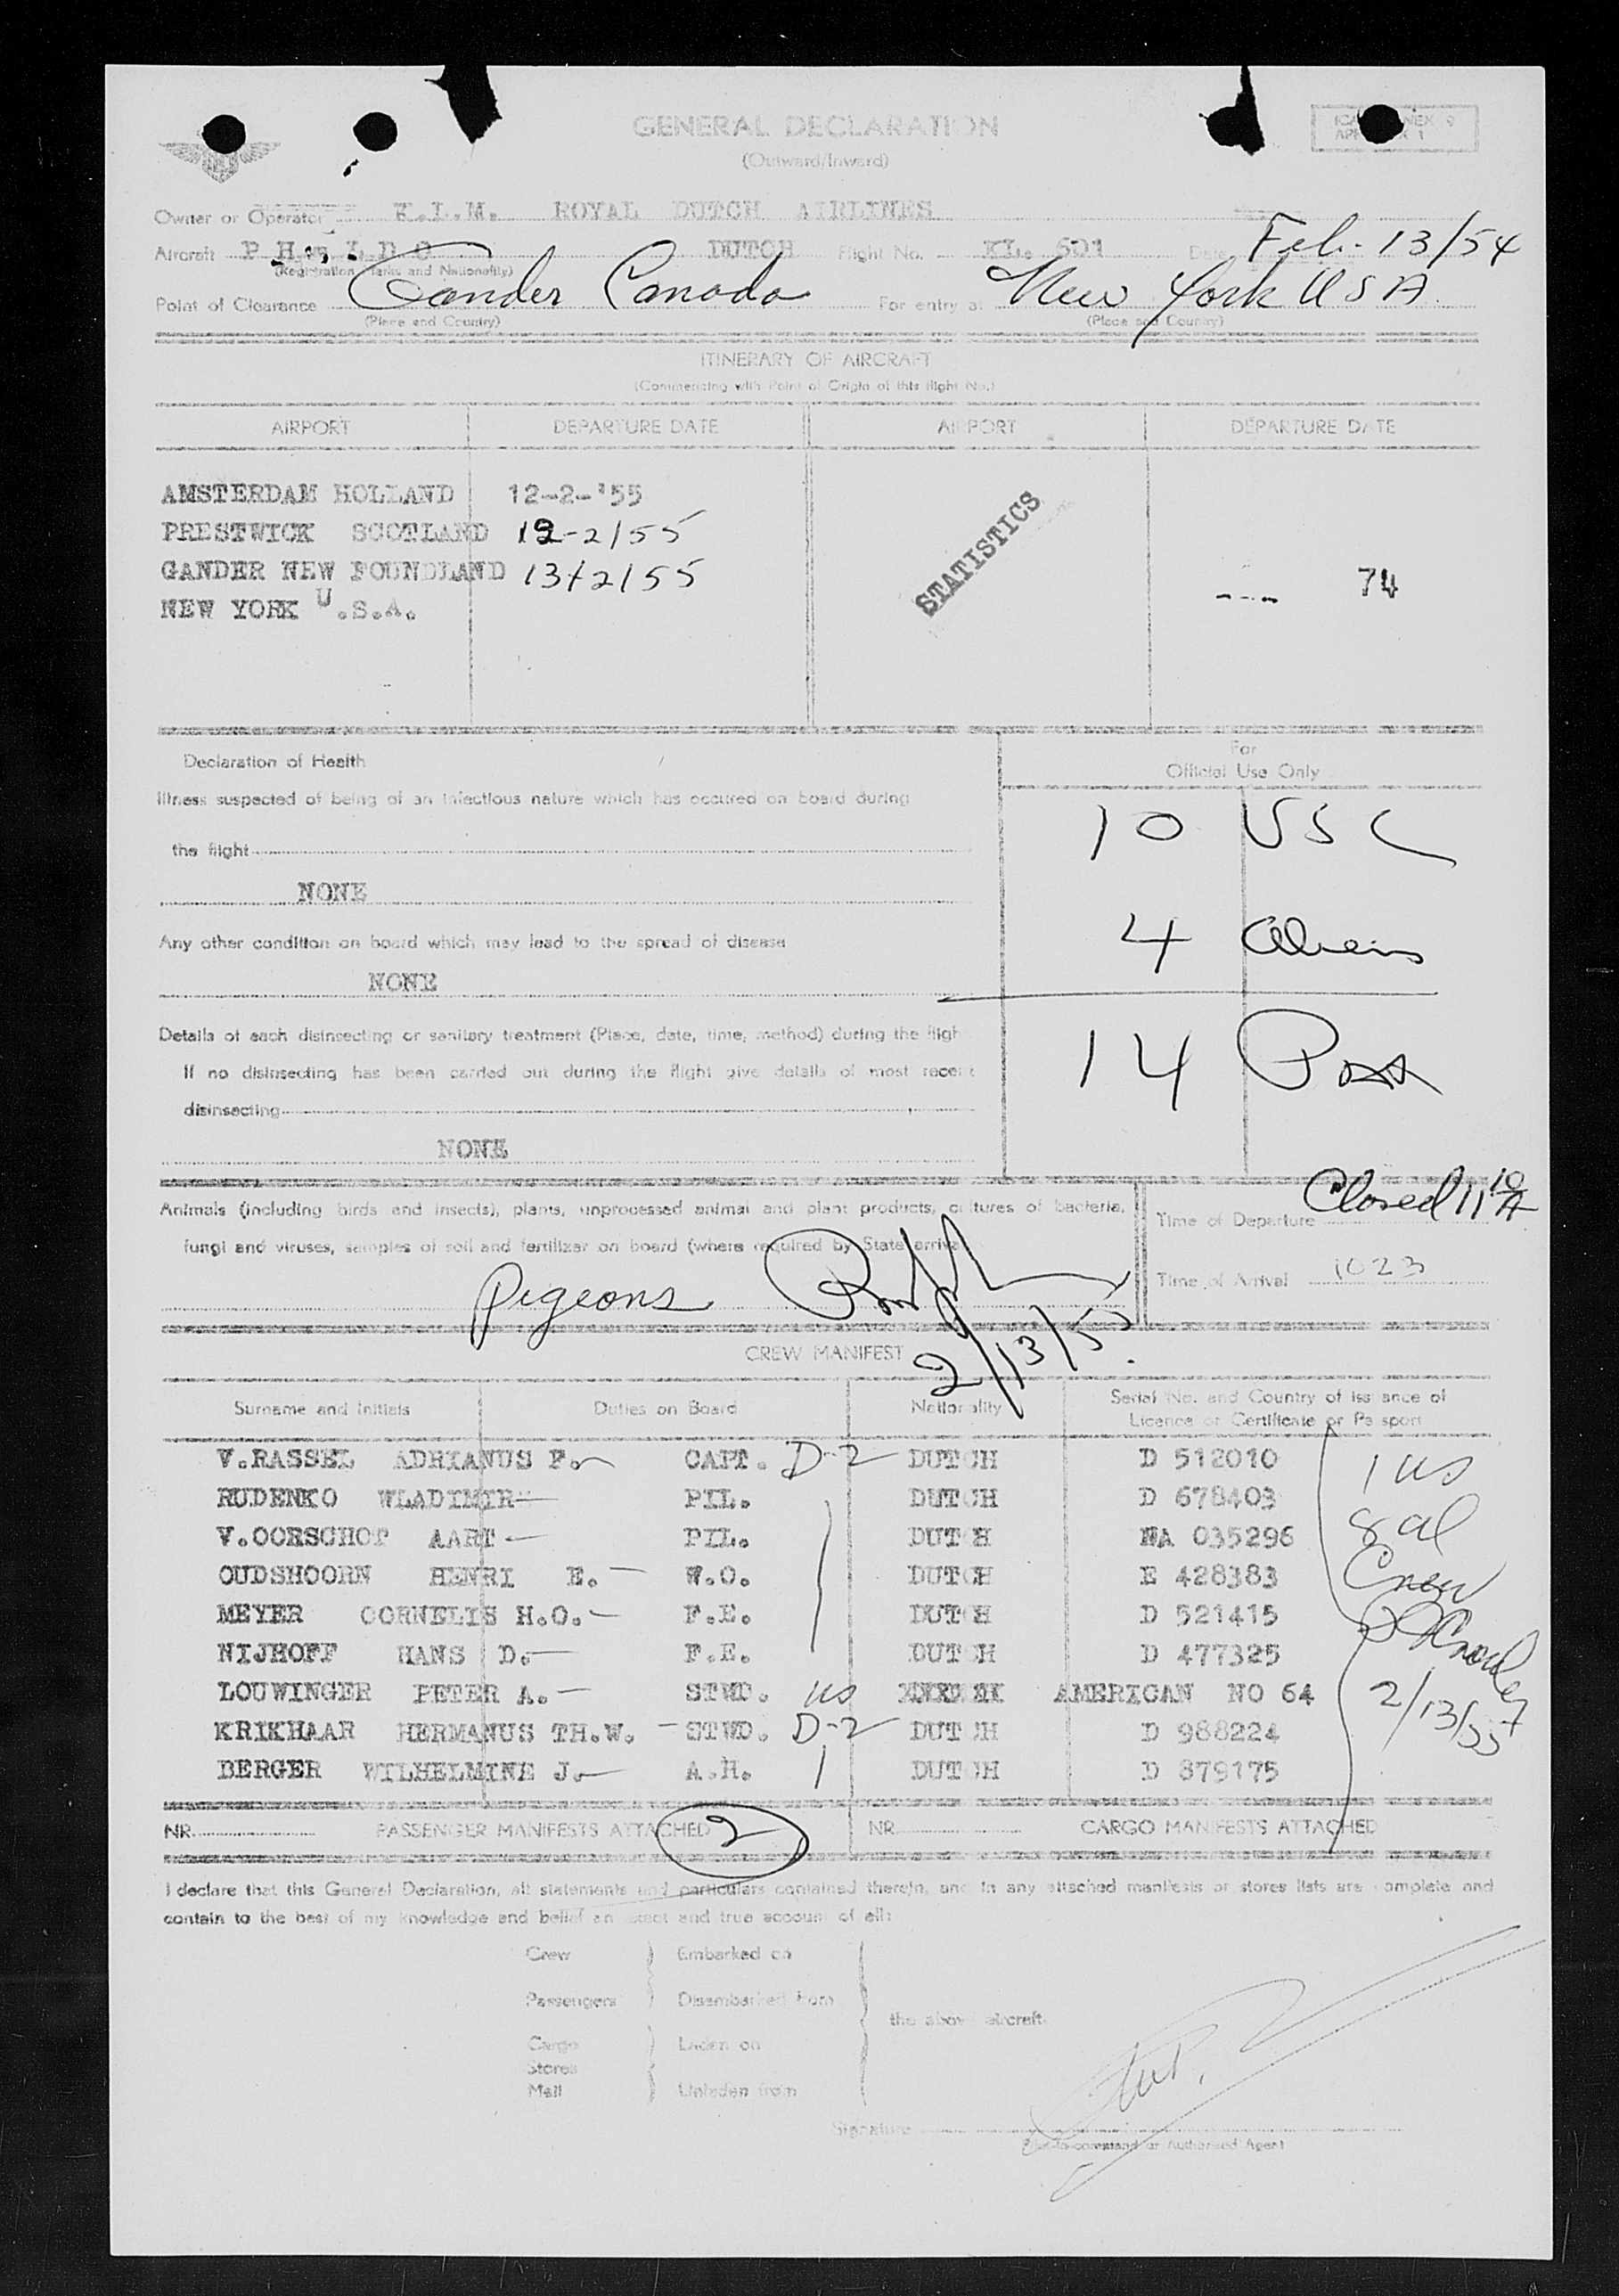 GENERAL DECLARATION
(Outward/Inward)
Owner or Operator K.L.M. ROYAL DUTCH AIRLINES
Aircraft DUTCH Flight No. KL. 601 Date Feb. 13/54
(Registration Marks and Nationality)
Point of Clearance Gander Canada For entry at New York USA
(Place and Country) (Place and Country)
ITINERARY OF AIRCRAFT
(Commencing with Point of Origin of this flight No.)
AIRPORT DEPARTURE DATE AIRPORT DEPARTURE DATE
AMSTERDAM HOLLAND 12-2-'55
PRESTWICK SCOTLAND 12-2/55
GANDER NEW FOUNDLAND 13/2/55
NEW YORK U.S.A.
STATISTICS
---- 74
Declaration of Health
For
Official Use Only
Illness suspected of being of an infectious nature which has occured on board during
the flight
NONE
10 USC
Any other condition on board which may lead to the spread of disease
NONE
4 Aliens
Details of each disinsecting or sanitary treatment (Place, date, time, method) during the fligh
If no disinsecting has been carried out during the flight give details of most recent
disinsecting
NONE
14 Pass
Animals (including birds and insects), plants, unprocessed animal and plant products, cultures of bacteria,
fungi and viruses, samples of soil and fertilizer on board (where required by State arrival
Pigeons
2/13/55
Time of Departure Closed 11 10 A
Time of Arrival 1023
CREW MANIFEST
Surname and Initials Duties on Board Nationality Serial No. and Country of issuance of
Licence or Certificate or Passport
V.RASSEL ADRIANUS F. CAPT. D-2 DUTCH D 512010
RUDENKO WLADIMIR PIL. DUTCH D 678403
V.OORSCHOT AART PIL. DUTCH NA 035296
OUDSHOORN HENRI E. W.O. DUTCH E 428383
MEYER CORNELIS H.O. F.E. DUTCH D 521415
NIJHOFF HANS D. F.E. DUTCH D 477325
LOUWINGER PETER A. STWD. US AMERICAN NO 64
KRIKHAAR HERMANUS TH.W. STWD. D-2 DUTCH D 988224
BERGER WILHELMINE J. A.H. DUTCH D 879175
1 US
8 al
Crew
2/13/55
NR. PASSENGER MANIFESTS ATTACHED 2 NR. CARGO MANIFESTS ATTACHED
I declare that this General Declaration, all statements and particulars contained therein, and in any attached manifests or stores lists are complete and
contain to the best of my knowledge and belief an exact and true account of all:
Crew Embarked on
Passengers Disembarked from
the above aircraft
Cargo Laden on
Stores
Mail Unladen from
Signature
Pilot-in-command or Authorised Agent